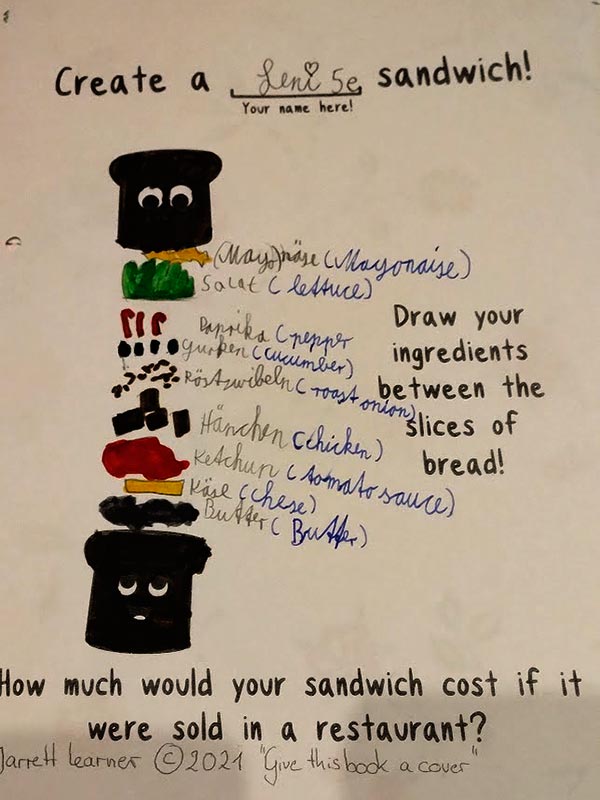 Create a Leni 5e sandwich!
Your name here!
(Mayo)näse (Mayonaise)
Salat (lettuce)
Paprika (pepper
Gurken (cucumber)
Röstzwibeln (roast onion)
Hänchen (chicken)
Ketchup (tomato sauce)
Käse (chese)
Butter (Butter)
Draw your
ingredients
between the
slices of
bread!
How much would your sandwich cost if it
were sold in a restaurant?
Jarrett Learner © 2021 "Give this book a cover"